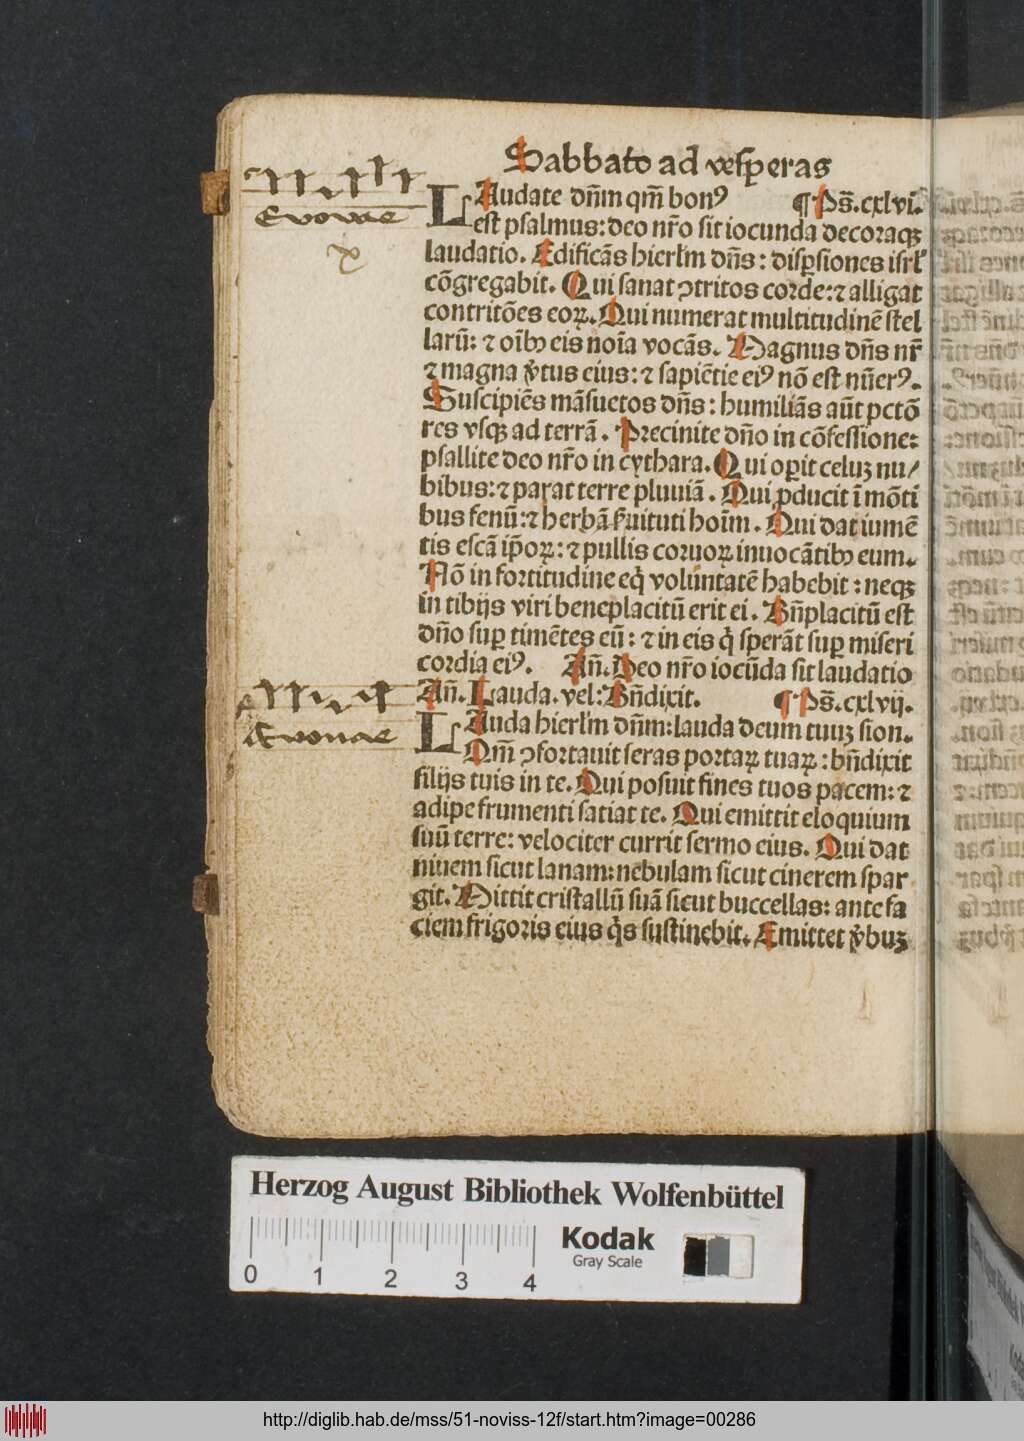 Sabbato ad vesꝑeras
LAudate dn̄m qm̄ bonꝰ ¶ Ps̄.cxlvi.
est psalmus: deo nr̄o sit iocunda decoraqꝫ
laudatio. Edificās hierl̄m dn̄s: disꝑsiones isrl̄
cōgregabit. Qui sanat ↄtritos corde: ⁊ alligat
contritōes eoꝝ. Qui numerat multitudinē stel
larū: ⁊ oībꝫ eis noīa vocās. Magnus dn̄s nr̄
⁊ magna v̄tus eius: ⁊ sapiētie eiꝰ nō est nūerꝰ.
Suscipiēs māsuetos dn̄s: humiliās aūt pctō
res vsqꝫ ad terrā. Precinite dn̄o in cōfessione:
psallite deo nr̄o in cythara. Qui oꝑit celuꝫ nu/
bibus: ⁊ parat terre pluuiā. Qui ꝓducit ī mōti
bus fenū: ⁊ herbā ẜuituti hoīm. Qui dat iumē
tis escā ip̄oꝝ: ⁊ pullis coruoꝝ inuocātibꝫ eum.
Nō in fortitudine eq̇ voluntatē habebit: neqꝫ
in tibijs viri beneplacitū erit ei. Bn̄placitū est
dn̄o suꝑ timētes eū: ⁊ in eis q̇ sperāt suꝑ miseri
cordia eiꝰ. An̄. Deo nr̄o iocūda sit laudatio
An̄. Lauda. vel: Bn̄dixit. ¶ Ps̄.cxlvij.
LAuda hierl̄m dn̄m: lauda deum tuuꝫ sion.
Qm̄ ↄfortauit seras portaꝝ tuaꝝ: bn̄dixit
filijs tuis in te. Qui posuit fines tuos pacem: ⁊
adipe frumenti satiat te. Qui emittit eloquium
suū terre: velociter currit sermo eius. Qui dat
niuem sicut lanam: nebulam sicut cinerem spar
git. Mittit cristallū suā sicut buccellas: ante fa
ciem frigoris eius q̇s sustinebit. Emittet v̄buꝫ
Evovae
Ævovae
Herzog August Bibliothek Wolfenbüttel
Kodak
Gray Scale
0 1 2 3 4
http://diglib.hab.de/mss/51-noviss-12f/start.htm?image=00286